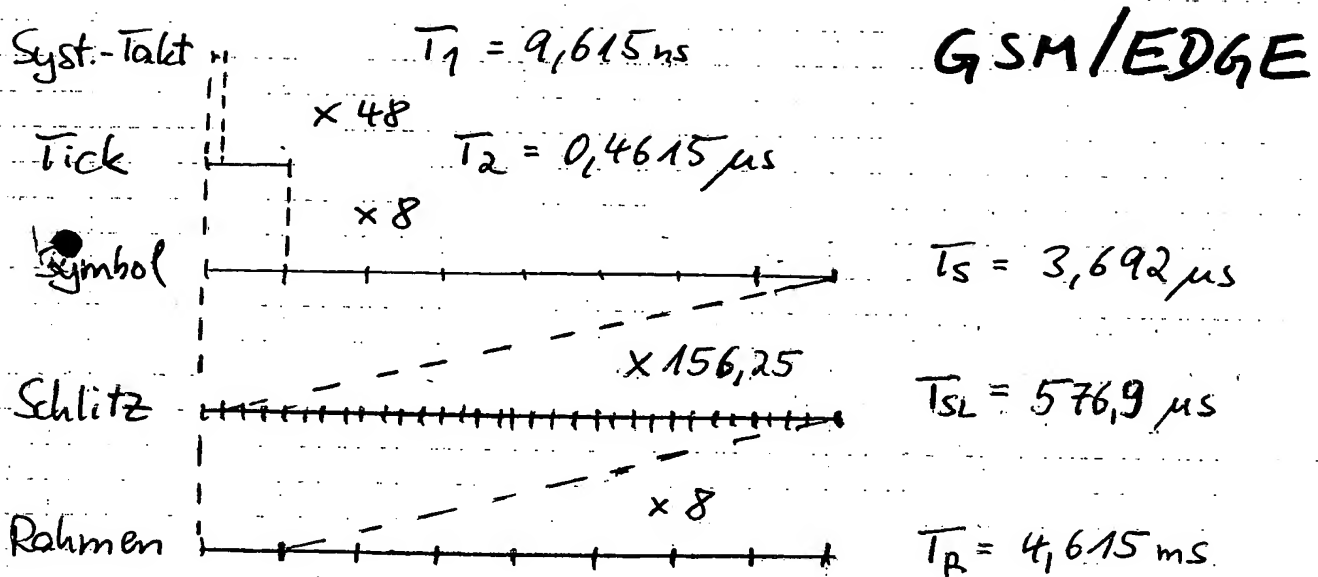 Syst.-Takt T1 = 9,615 ns GSM/EDGE
× 48
Tick T2 = 0,4615 µs
× 8
Symbol TS = 3,692 µs
× 156,25
Schlitz TSL = 576,9 µs
× 8
Rahmen TR = 4,615 ms